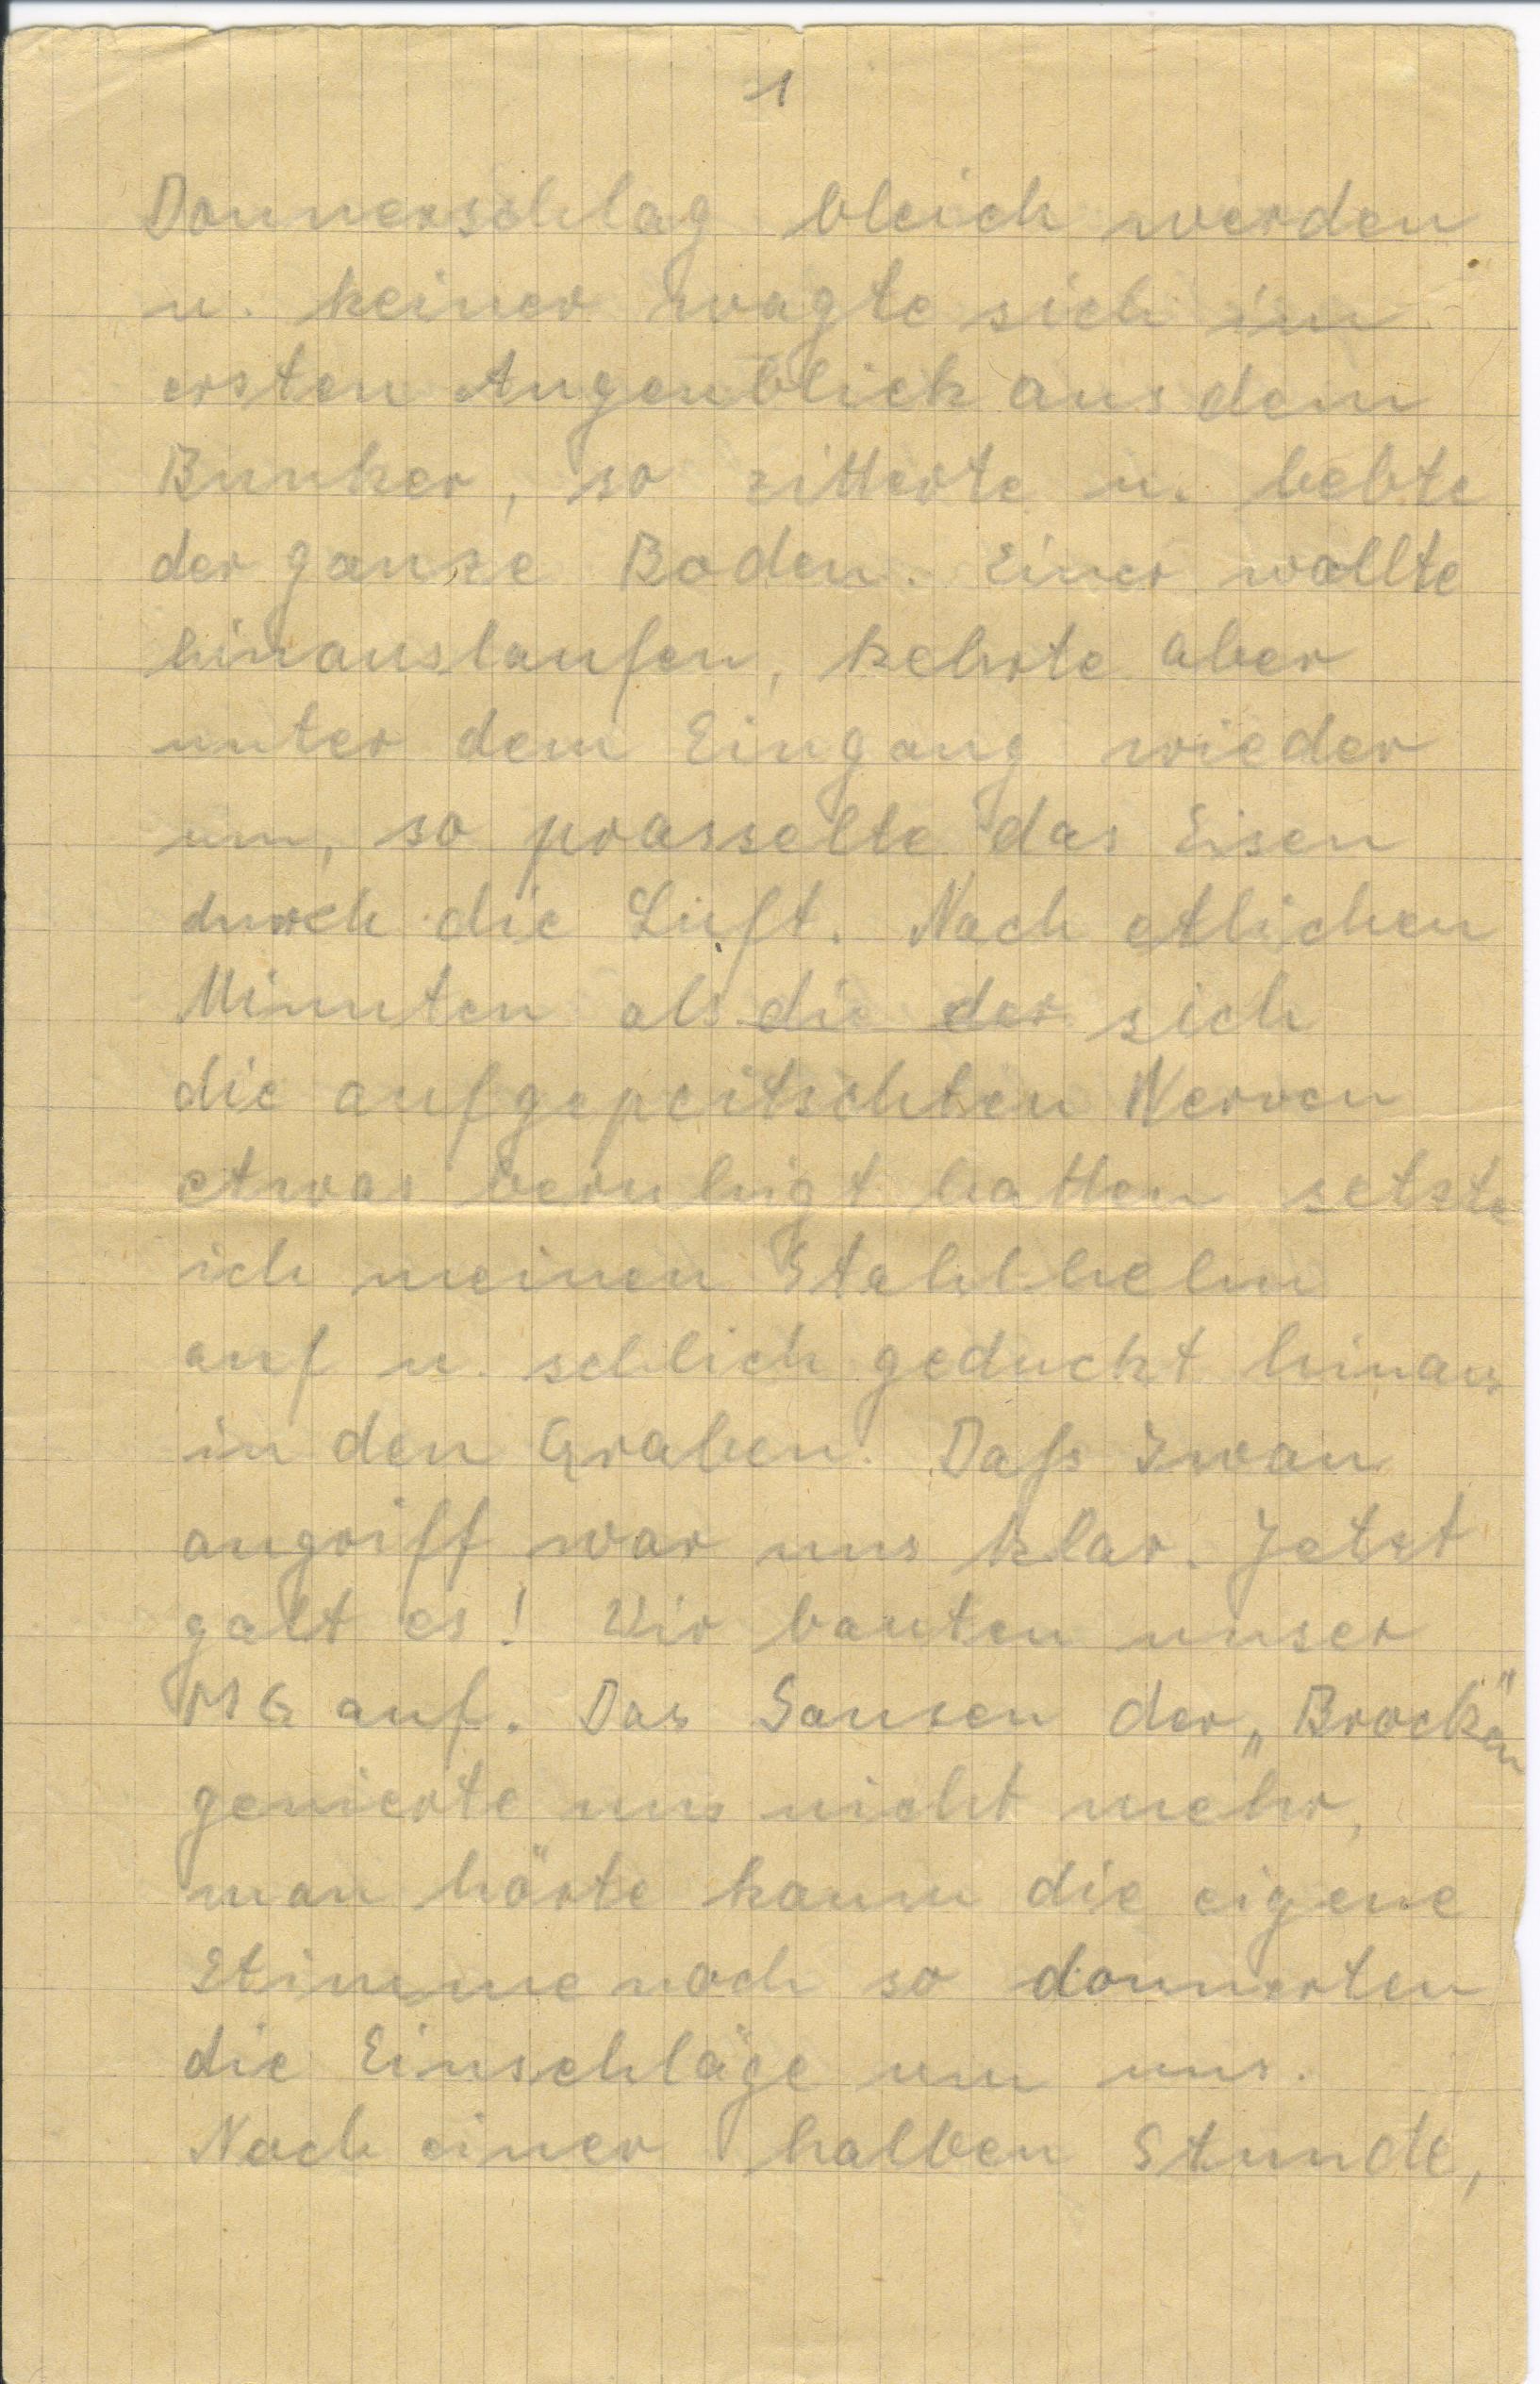 1
Donnerschlag bleich werden
u. keiner wagte sich im
ersten Augenblick aus dem
Bunker, so zitterte u. bebte
der ganze Boden. Einer wollte
hinauslaufen, kehrte aber
unter dem Eingang wieder
um, so prasselte das Eisen
durch die Luft. Nach etlichen
Minuten als die der sich
die aufgepeitschten Nerven
etwas beruhigt hatten setzte
ich meinen Stahlhelm
auf u. schlich geduckt hinaus
in den Graben. Daß Iwan
angriff war uns klar. Jetzt
galt es! Wir bauten unser
MG auf. Das Sausen der „Brocken"
genierte uns nicht mehr,
man hörte kaum die eigene
Stimme noch so donnerten
die Einschläge um uns.
Nach einer halben Stunde,